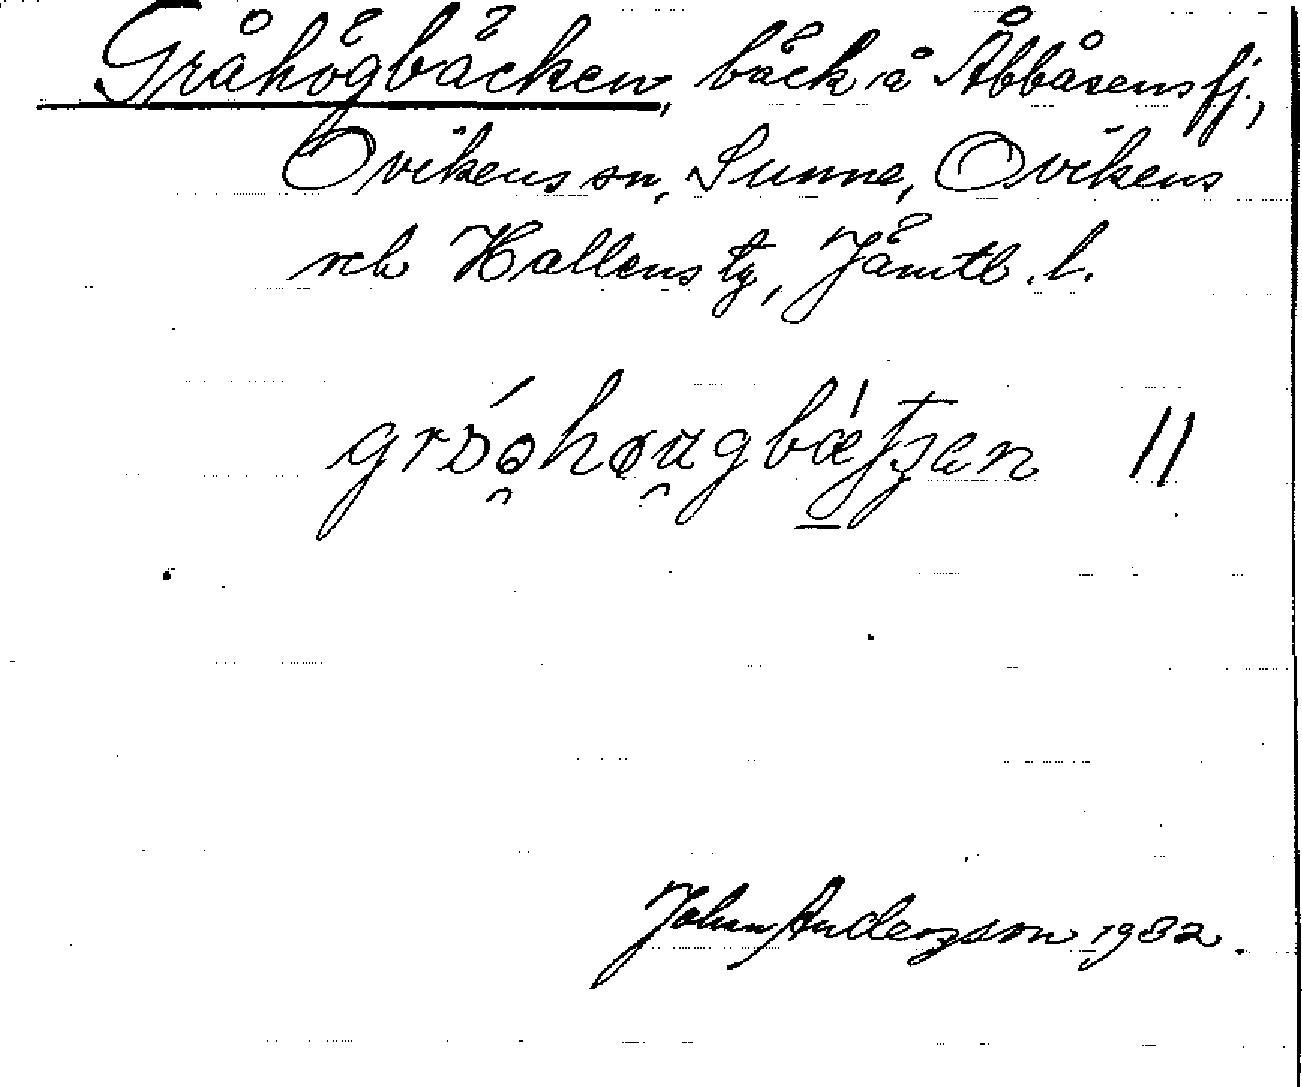 Gråhögbäcken, bäck å Åbbåsens fj.,
Ovikens sn, Sunne, Ovikens
och Hallens tg, Jämtl. l.
John Andersson 1932.